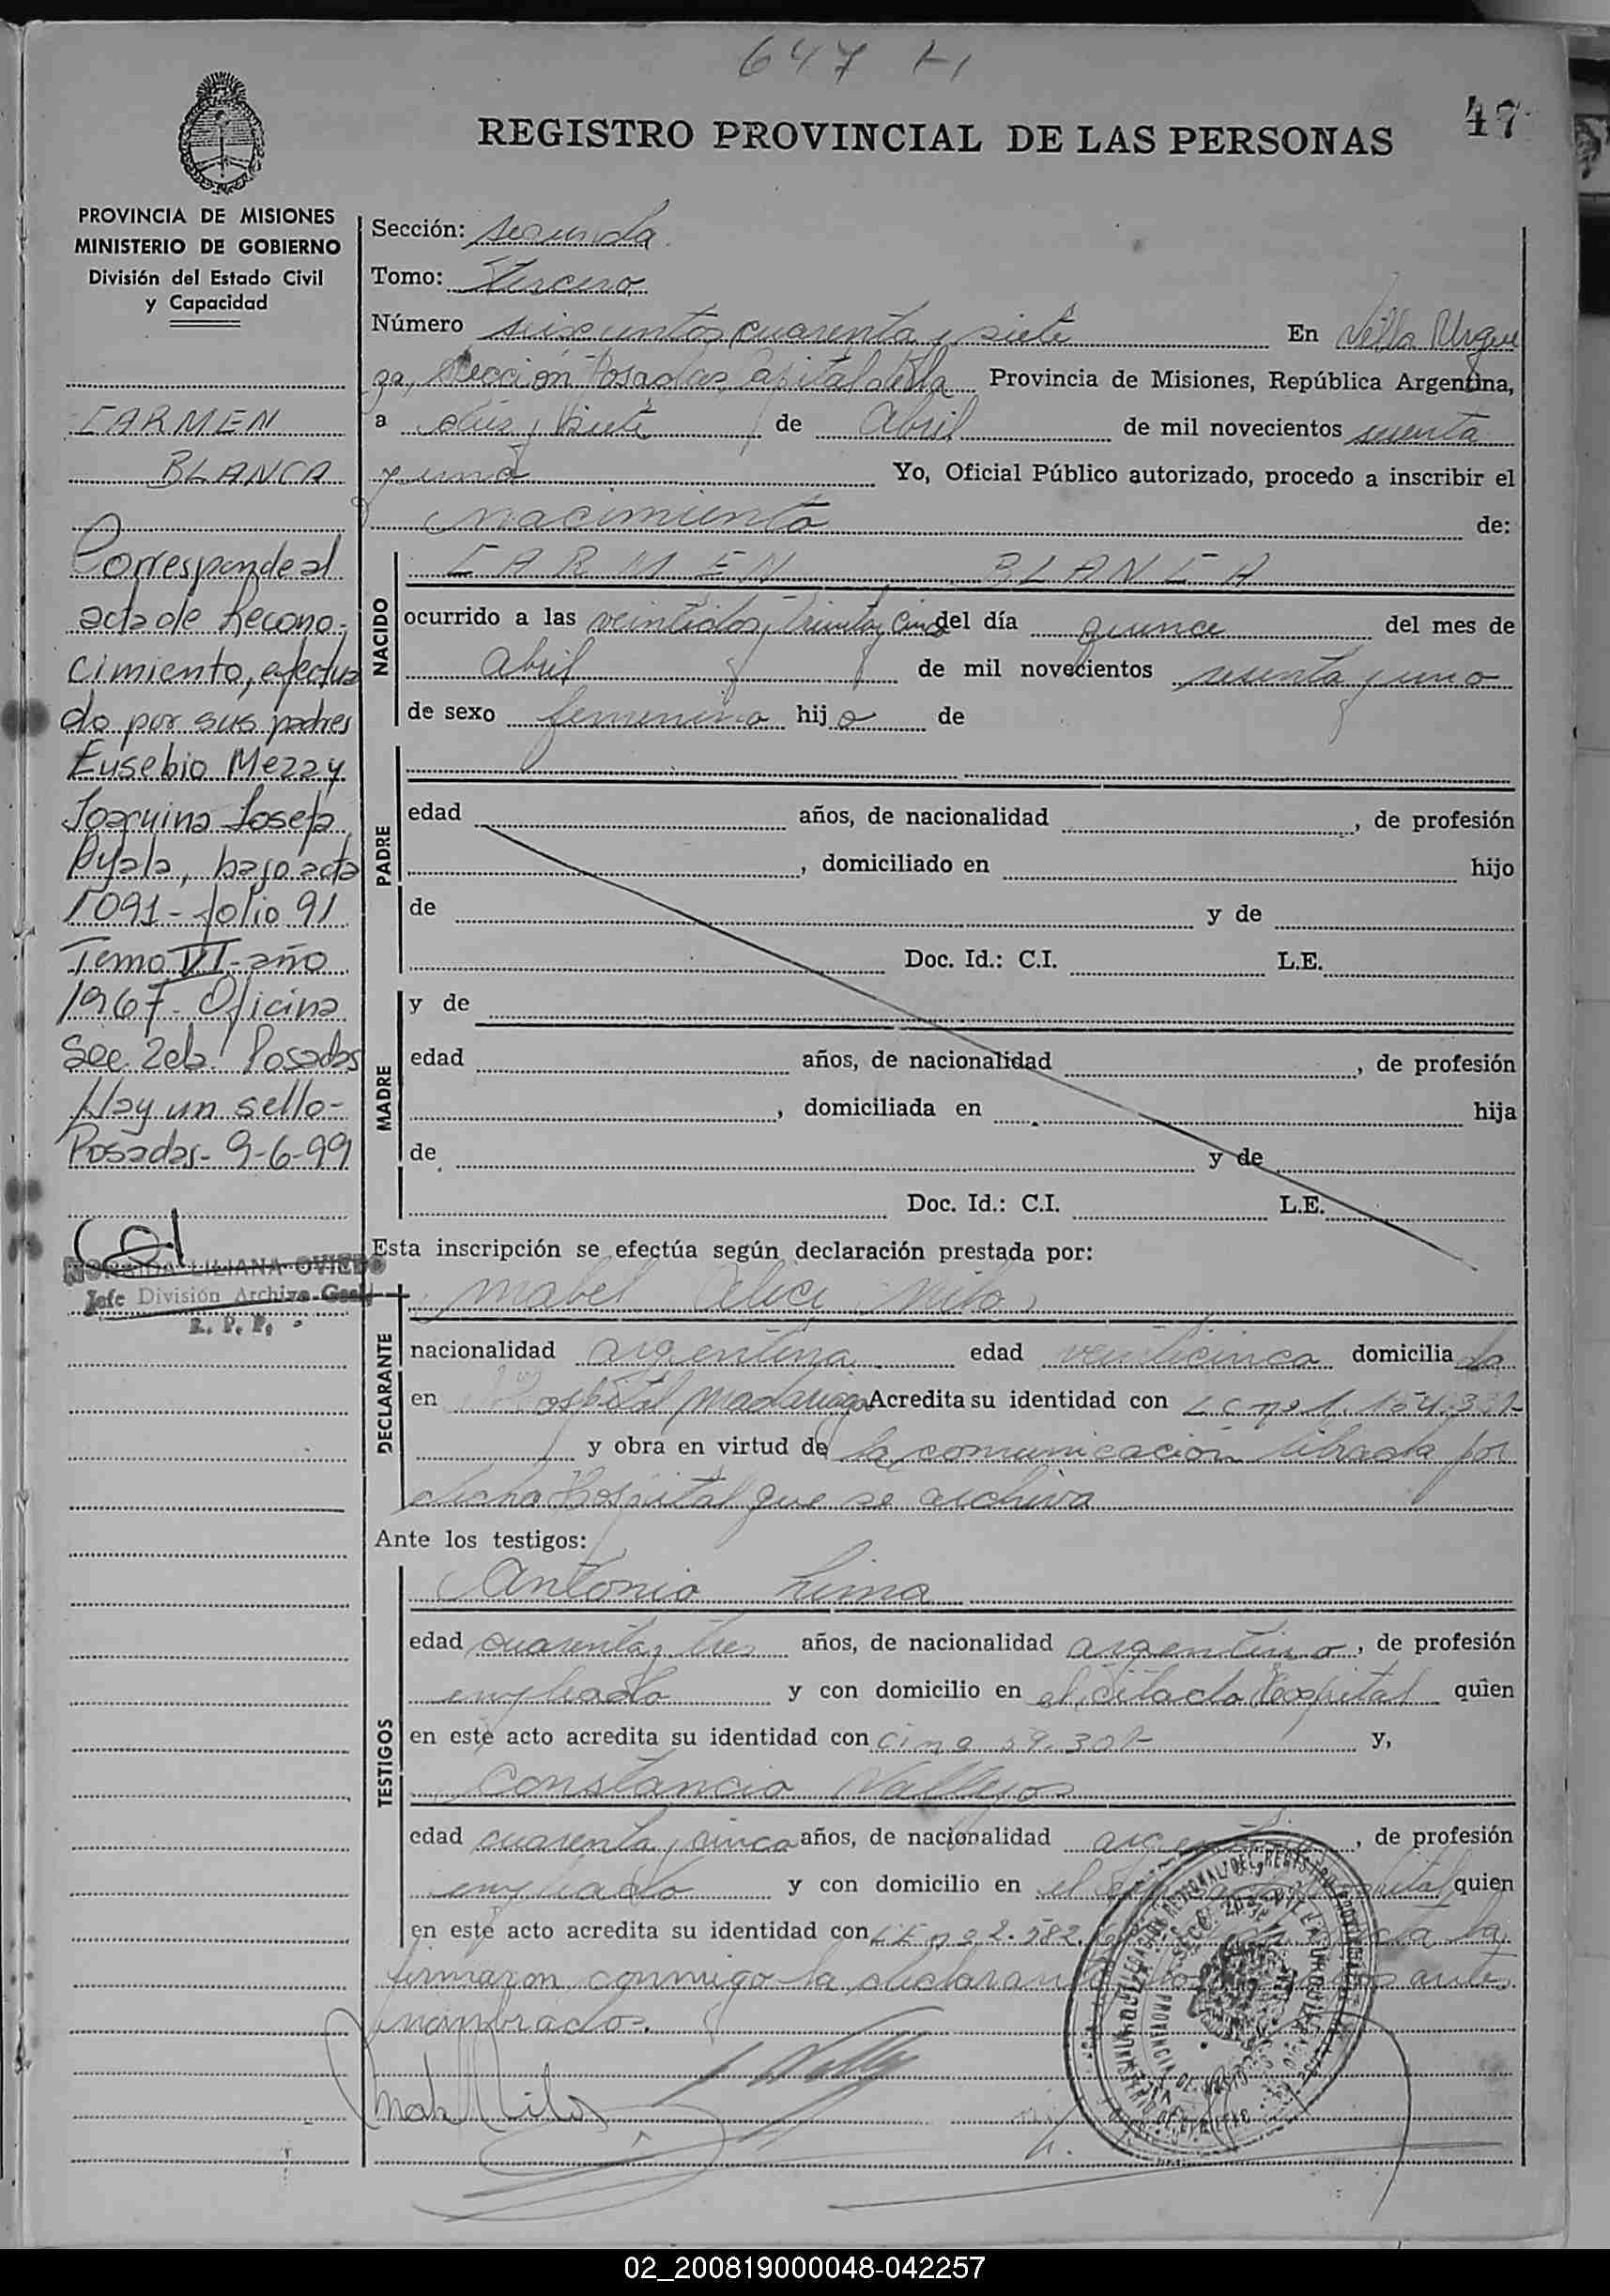 647
47
REGISTRO PROVINCIAL DE LAS PERSONAS
PROVINCIA DE MISIONES
MINISTERIO DE GOBIERNO
División del Estado Civil
y Capacidad
CARMEN
BLANCA
Corresponde al
acta de Recono-
cimiento, efectua
do por sus padres
Eusebio Meza y
Joaquina Josefa
Ayala, bajo acta
1091 - folio 91
Tomo VI - año
1967 - Oficina
Sec. 2da. Posadas
Hay un sello -
Posadas - 9-6-99
LILIANA OVIEDO
Jefe División Archivo Gral
R. P. P.
Sección: segunda
Tomo: Tercero
Número seiscuntos cuarenta y siete En Villa Urqui
za, Sección Posadas, Capital de la Provincia de Misiones, República Argentina,
a diez y siete de Abril de mil novecientos sesenta
y uno Yo, Oficial Público autorizado, procedo a inscribir el
nacimiento de:
CARMEN BLANCA
NACIDO
ocurrido a las veintidos, treinta y cinco del día quince del mes de
Abril de mil novecientos sesenta y uno
de sexo femenino hija de
PADRE
edad años, de nacionalidad , de profesión
, domiciliado en hijo
de y de
Doc. Id.: C.I. L.E.
MADRE
y de
edad años, de nacionalidad , de profesión
, domiciliada en hija
de y de
Doc. Id.: C.I. L.E.
Esta inscripción se efectúa según declaración prestada por:
DECLARANTE
Mabel Milo
nacionalidad argentina edad veinticinco domiciliada
en Hospital Madariaga Acredita su identidad con L C nº
y obra en virtud de la comunicación librada por
dicho Hospital que se archiva
Ante los testigos:
TESTIGOS
Antonio Lima
edad cuarenta y tres años, de nacionalidad argentino, de profesión
empleado y con domicilio en el citado Hospital quien
en este acto acredita su identidad con C I nº 59.301 y,
Constancio Vallejos
edad cuarenta y cinco años, de nacionalidad argentino, de profesión
empleado y con domicilio en el Hospital quien
en este acto acredita su identidad con L E nº 2.582.
firmaron conmigo la declarante antes
nombrados.
02_200819000048-042257